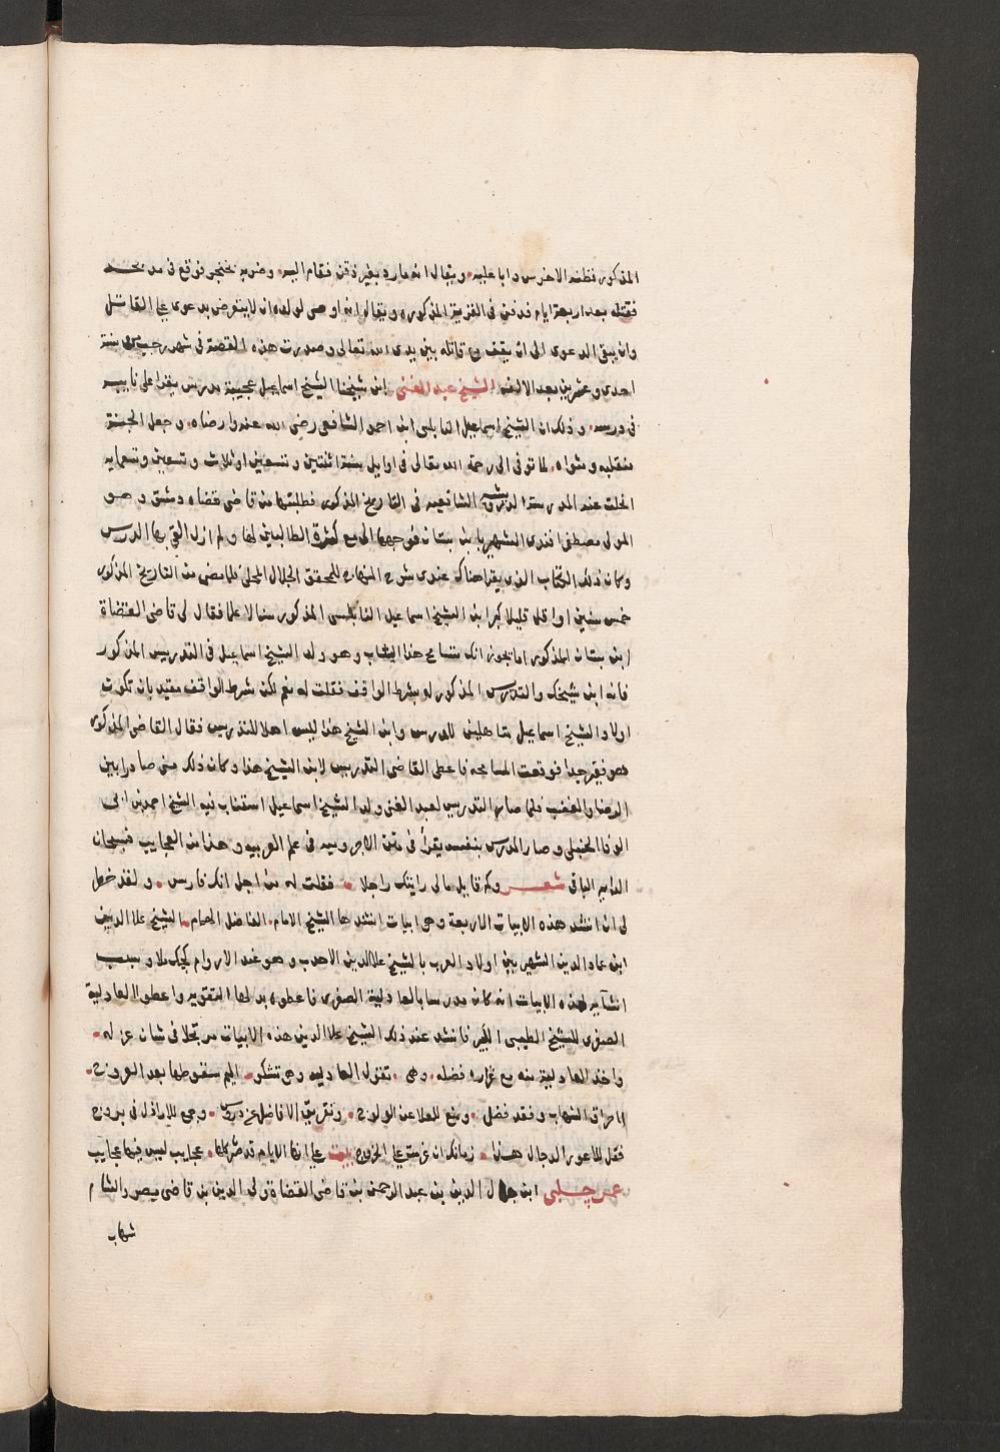 المذكور فظنه الاخرس دابا عليه ويقال انه عاره بغير ذقن فقام اليه وضربه بخنجر فوقع في
فقتله بعد اربعة ايام فدفن في القرية المذكوره ويقال انه اوصى لولده ان لا يتعرض بدعوى على القاتل
وان يبقي الدعوى الى ان يقف مع قاتله بين يدى الله تعالى وصدرت هذه القصة في شهر رجب سنة
احدى وعشرين بعد الالف الشيخ عبد الغنى ابن شيخنا الشيخ اسماعيل عجيبة مدرس يقرا على نايبه
في درسه وذلك ان الشيخ اسماعيل النابلسى ابن احمد الشافعى رضى الله عنه وارضاه وجعل الجنة
منقلبه ومثواه لما توفى الى رحمة الله تعالى في اوايل سنة اثنتين وتسعين او ثلاث وتسعين وتسعمايه
انحلت عنه المدرسة الدرويشيه الشافعيه في التاريخ المذكور فطلبتها من قاضى قضاه دمشق وهو
المولى مصطفى افندى الشهير بابن بستان فوجهها الى مع كثرة الطالبين لها ولم ازل القى بها الدرس
وكان ذلك الكتاب الذى يقرا هناك عندى شرح المنهاج للمحقق الجلال المحلى فلما مضى من التاريخ المذكور
خمس سنين او اقل قليلا كبر ابن الشيخ اسماعيل النابلسى المذكور سنا لا علما فقال لى قاضى القضاة
ابن بستان المذكور اما يجوز انك تسامح هذا الشاب وهو ولد الشيخ اسماعيل في التدريس المذكور
فانه ابن شيخك والتدريس المذكور له بشرط الواقف فقلت له نعم لكن شرط الواقف مقيد بان تكون
اولاد الشيخ اسماعيل متاهلين للدرس وابن الشيخ هذا ليس اهلا للتدريس فقال القاضى المذكور
هو فقير جدا فوقعت المسامحه فاعطى القاضى التدريس لابن الشيخ هذا وكان ذلك منى صادرا بين
الرضا والغضب فلما صار التدريس لعبد الغنى ولد الشيخ اسماعيل استناب فيه الشيخ احمد بن ابى
الوفا الحنبلى وصار المدرس بنفسه يقرأ في متن الاجروميه في علم العربيه وهذا من العجايب فسبحان
الدايم الباقى شعر وكم قايل مالى رايتك راجلا فقلت له من اجل انك فارس ولقد خطر
لى ان انشد هذه الابيات الاربعة وهى ابيات انشدها الشيخ الامام الفاضل الهمام الشيخ علا الدين
ابن عماد الدين الشهير بين اولاد العرب بالشيخ علا الدين الاحدب وهو عند الاروام كجك ملا وسبب
انشايه لهذه الابيات انه كان مدرسا بالعادلية الصغرى فاعطوه بدلها التقويه واعطوا العادلية
الصغرى للشيخ الطيبى الكبير فانشد عند ذلك الشيخ علا الدين هذه الابيات مرتجلا في شان عزله
واخذ العادلية منه مع غزاره فضله وهى تقول العادليه وهى تشكو اليم سقوطها بعد العروج
احراق التهاب وفقد فضلى ومنع للعلا عن الولوج وتقريق الافاضل عن دروسى وجمع للاراذل في بروج
فقل للاعور الدجال هذا زمانك ان عزمت على الخروج بيت على انها الايام قد صرن كلها عجايب ليس فيها عجايب
عمر چلبى ابن جمال الدين بن عبد الرحمن بن قاضى القضاة ولى الدين بن قاضى مصر والشام
شهاب